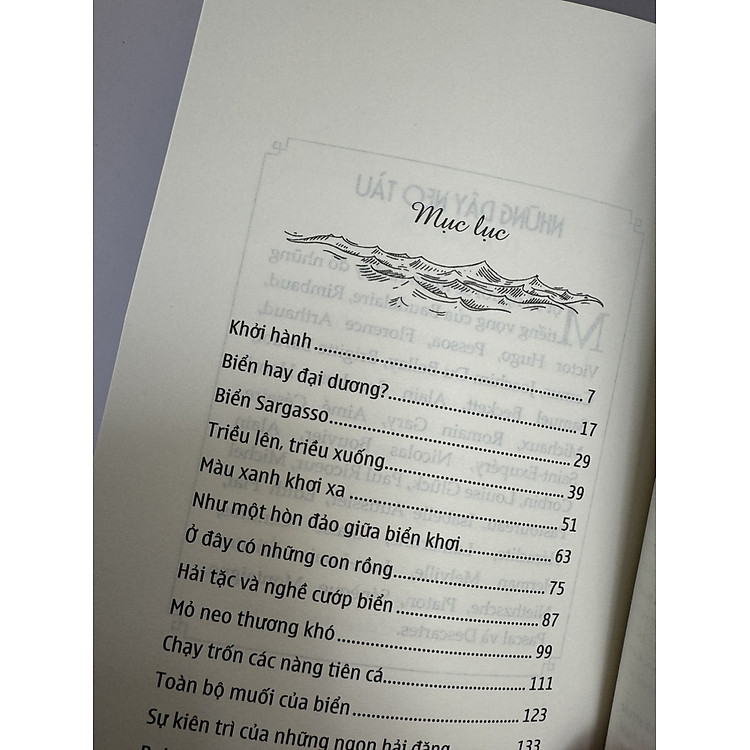 Mục lục
Khởi hành........7
Biển hay đại dương?........17
Biển Sargasso........29
Triều lên, triều xuống........39
Màu xanh khơi xa........51
Như một hòn đảo giữa biển khơi........63
Ở đây có những con rồng........75
Hải tặc và nghề cướp biển........87
Mỏ neo thương khó........99
Chạy trốn các nàng tiên cá........111
Toàn bộ muối của biển........123
Sự kiên trì của những ngọn hải đăng........133